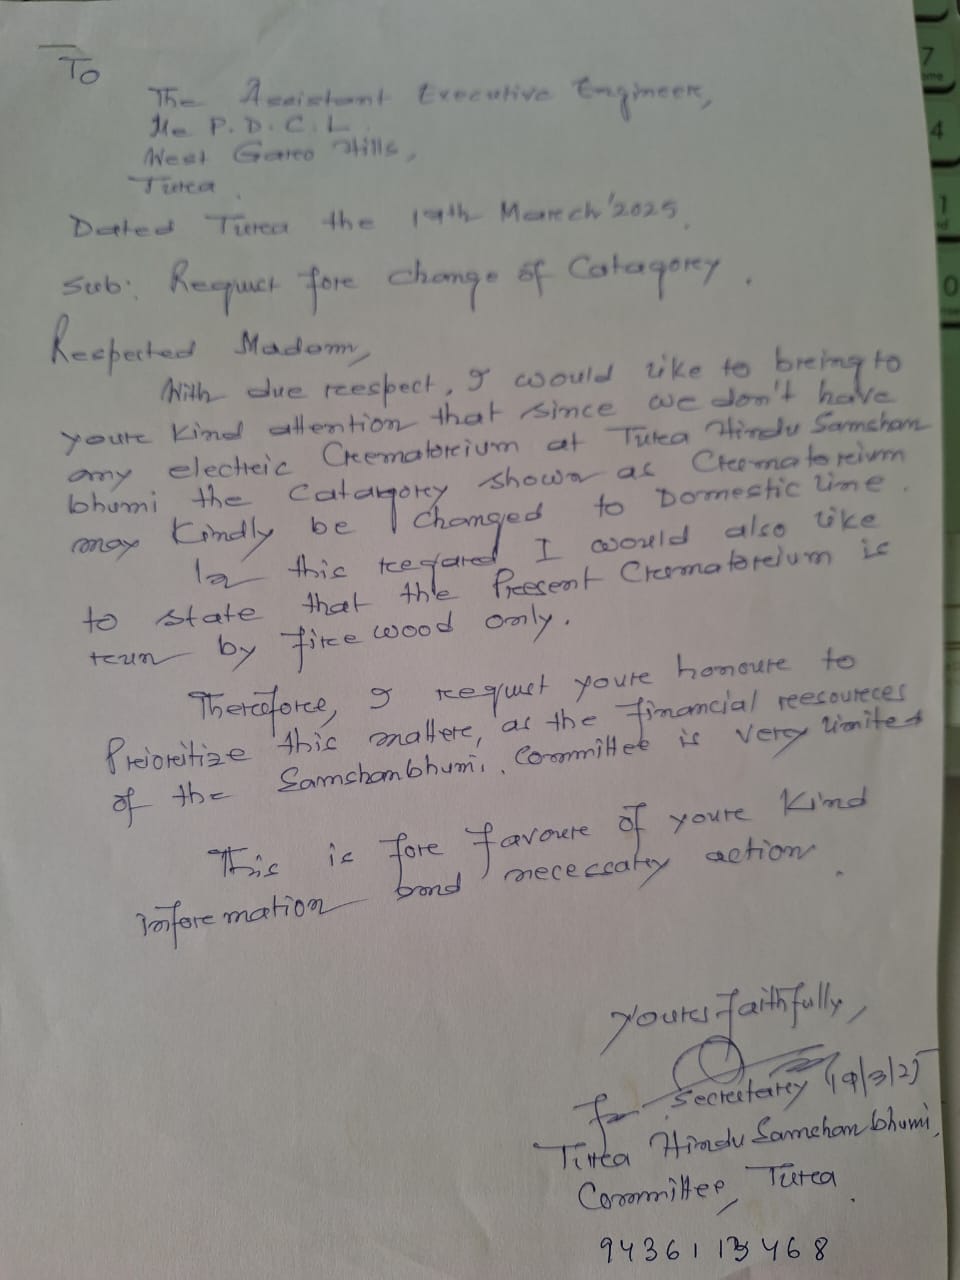 To
The Assistant Executive Engineer,
Me P.D.C.L
West Garo Hills,
Tura.
Dated Tura the 19th March'2025.
Sub: Request for change of Catagory.
Respected Madam,
With due respect, I would like to bring to
your kind attention that since we don't have
any electric Crematorium at Tura Hindu Samshan
bhumi the Catagory shown as Crematorium
may kindly be changed to Domestic line.
In this regard I would also like
to state that the Present Crematorium is
run by fire wood only.
Therefore, I request your honour to
Prioritize this matter, as the financial resources
of the Samshanbhumi, Committee is very limited
This is for favour of your kind
information and necessary action.
Yours faithfully,
for Secretary 19/3/25
Tura Hindu Samshan bhumi,
Committee, Tura.
7
4
1
0